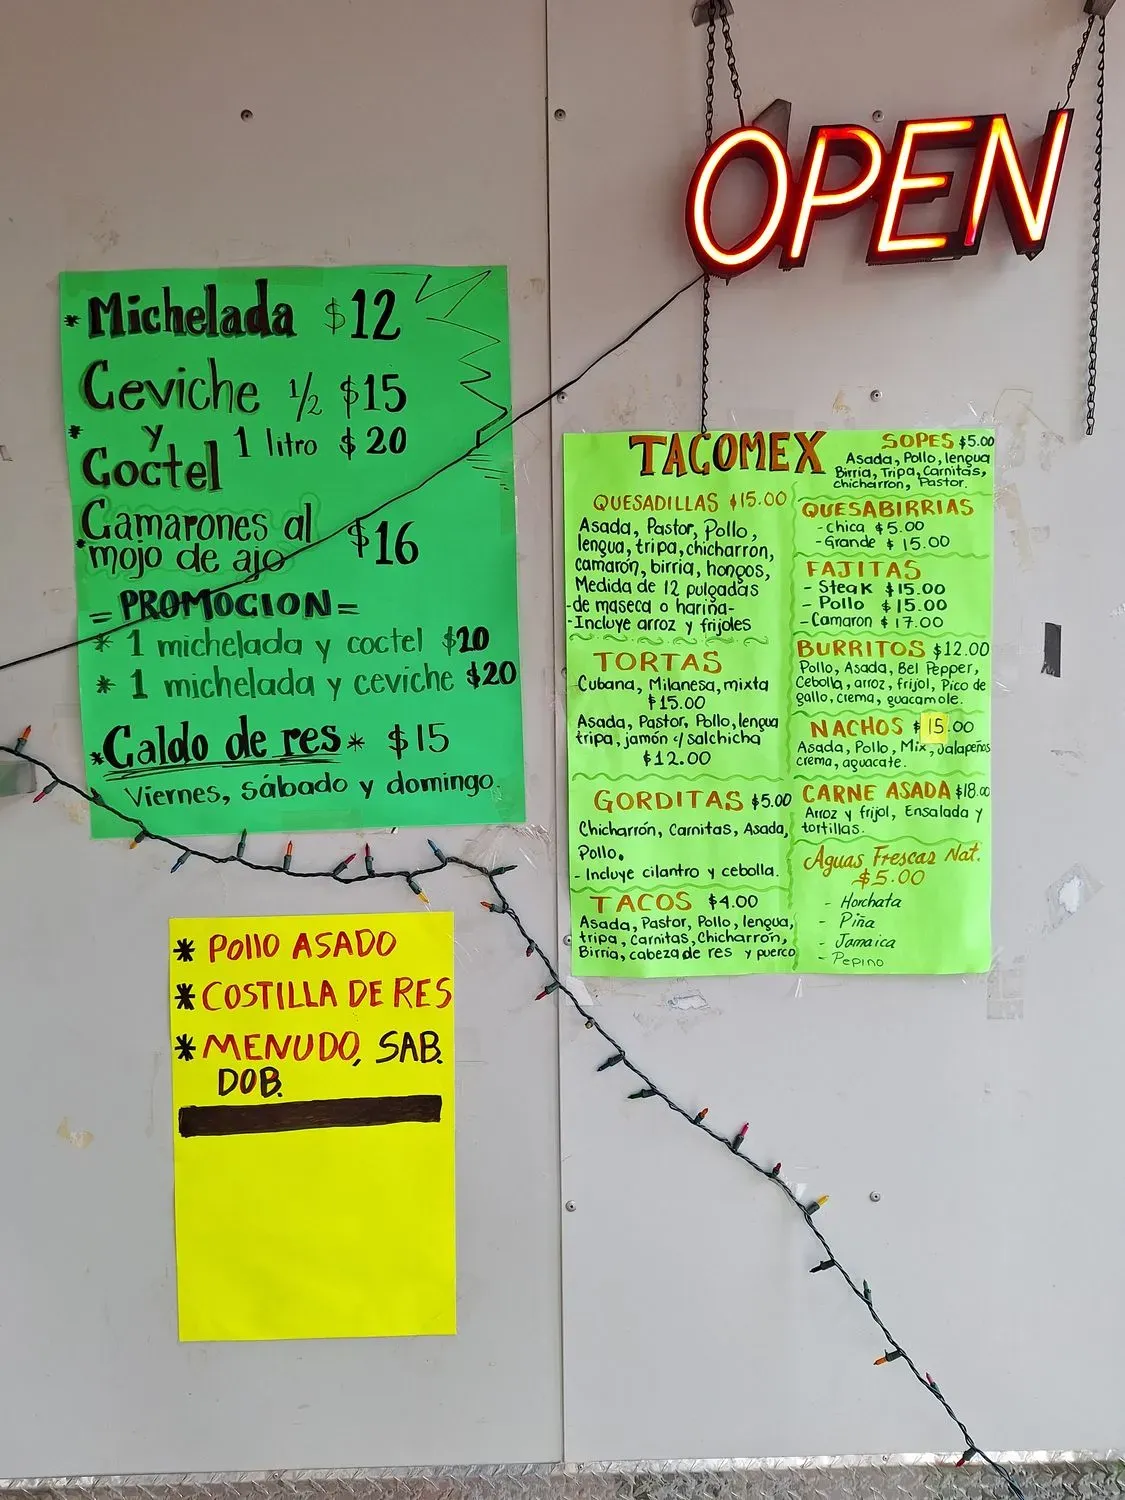 OPEN
* Michelada $12
Ceviche 1/2 $15
* y 1 litro $20
Coctel
Camarones al
* mojo de ajo $16
= PROMOCION =
* 1 michelada y coctel $20
* 1 michelada y ceviche $20
* Caldo de res * $15
Viernes, sábado y domingo.
* Pollo ASADO
* COSTILLA DE RES
* MENUDO, SAB.
DOB.
TACOMEX
QUESADILLAS $15.00
Asada, Pastor, Pollo,
lengua, tripa, chicharron,
camarón, birria, hongos,
Medida de 12 pulgadas
-de maseca o harina-
-Incluye arroz y frijoles
TORTAS
Cubana, Milanesa, mixta
$15.00
Asada, Pastor, Pollo, lengua
tripa, jamón c/ salchicha
$12.00
GORDITAS $5.00
Chicharrón, Carnitas, Asada,
Pollo.
- Incluye cilantro y cebolla.
TACOS $4.00
Asada, Pastor, Pollo, lengua,
tripa, Carnitas, Chicharrón,
Birria, cabeza de res y puerco
SOPES $5.00
Asada, Pollo, lengua
Birria, Tripa, Carnitas,
chicharron, Pastor.
QUESABIRRIAS
- Chica $5.00
- Grande $15.00
FAJITAS
- Steak $15.00
- Pollo $15.00
- Camaron $17.00
BURRITOS $12.00
Pollo, Asada, Bel Pepper,
Cebolla, arroz, frijol, Pico de
gallo, crema, guacamole.
NACHOS $15.00
Asada, Pollo, Mix, Jalapeños
crema, aguacate.
CARNE ASADA $18.00
Arroz y frijol, Ensalada y
tortillas.
Aguas Frescas Nat.
$5.00
- Horchata
- Piña
- Jamaica
- Pepino